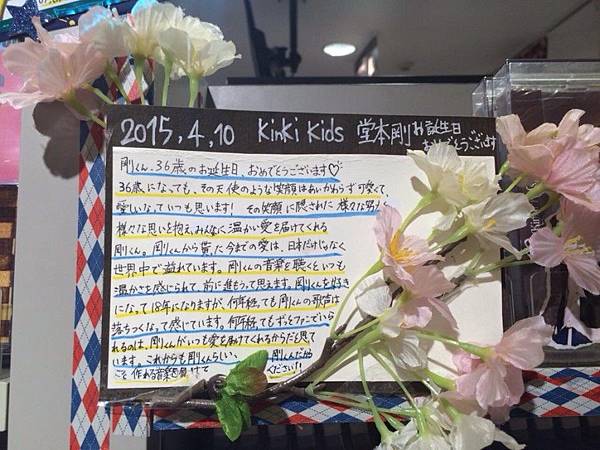 2015,4,10 KinKi Kids 堂本剛 お誕生日
おめでとうございます
剛くん、36歳のお誕生日、おめでとうございます♡
36歳になっても、その天使のような笑顔はあいかわらず可愛くて、
愛しいなっていつも思います！ その笑顔に隠された様々な
様々な思いを抱え、みんなに温かい愛を届けてくれる
剛くん。剛くんから貰った今までの愛は、日本だけじゃなく
世界中で溢れています。剛くんの音楽を聴くといつも
温かさを感じられて、前に進もうって思えます。剛くんを好き
になって18年になりますが、何年経っても剛くんの歌声は
落ちつくなって感じています。何年経ってもずっとファンでいら
れるのは、剛くんがいつも愛を届けてくれるからだと思って
います。これからも剛くんらしい、剛くんだから
こそ作れる音楽を聴かせてください！！